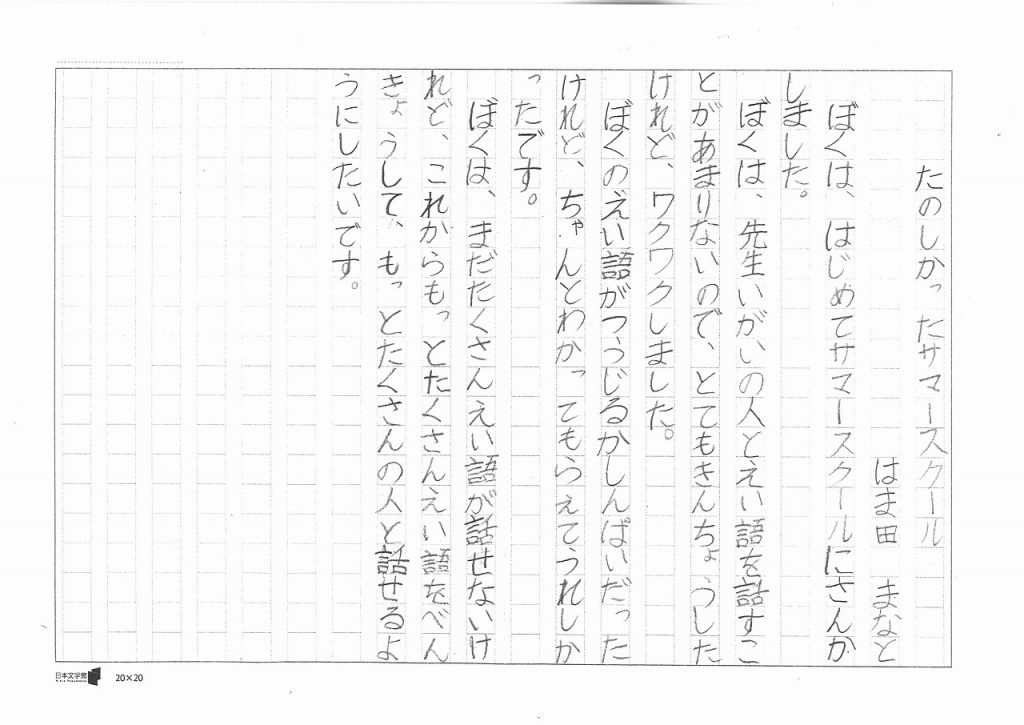 たのしかったサマースクール
はま田　まなと
ぼくは、はじめてサマースクールにさんか
しました。
ぼくは、先生いがいの人とえい語を話すこ
とがあまりないので、とてもきんちょうした
けれど、ワクワクしました。
ぼくのえい語がつうじるかしんぱいだった
けれど、ちゃんとわかってもらえてうれしか
ったです。
ぼくは、まだたくさんえい語が話せないけ
れど、これからもっとたくさんえい語をべん
きょうして、もっとたくさんの人と話せるよ
うにしたいです。
日本文学館
20×20